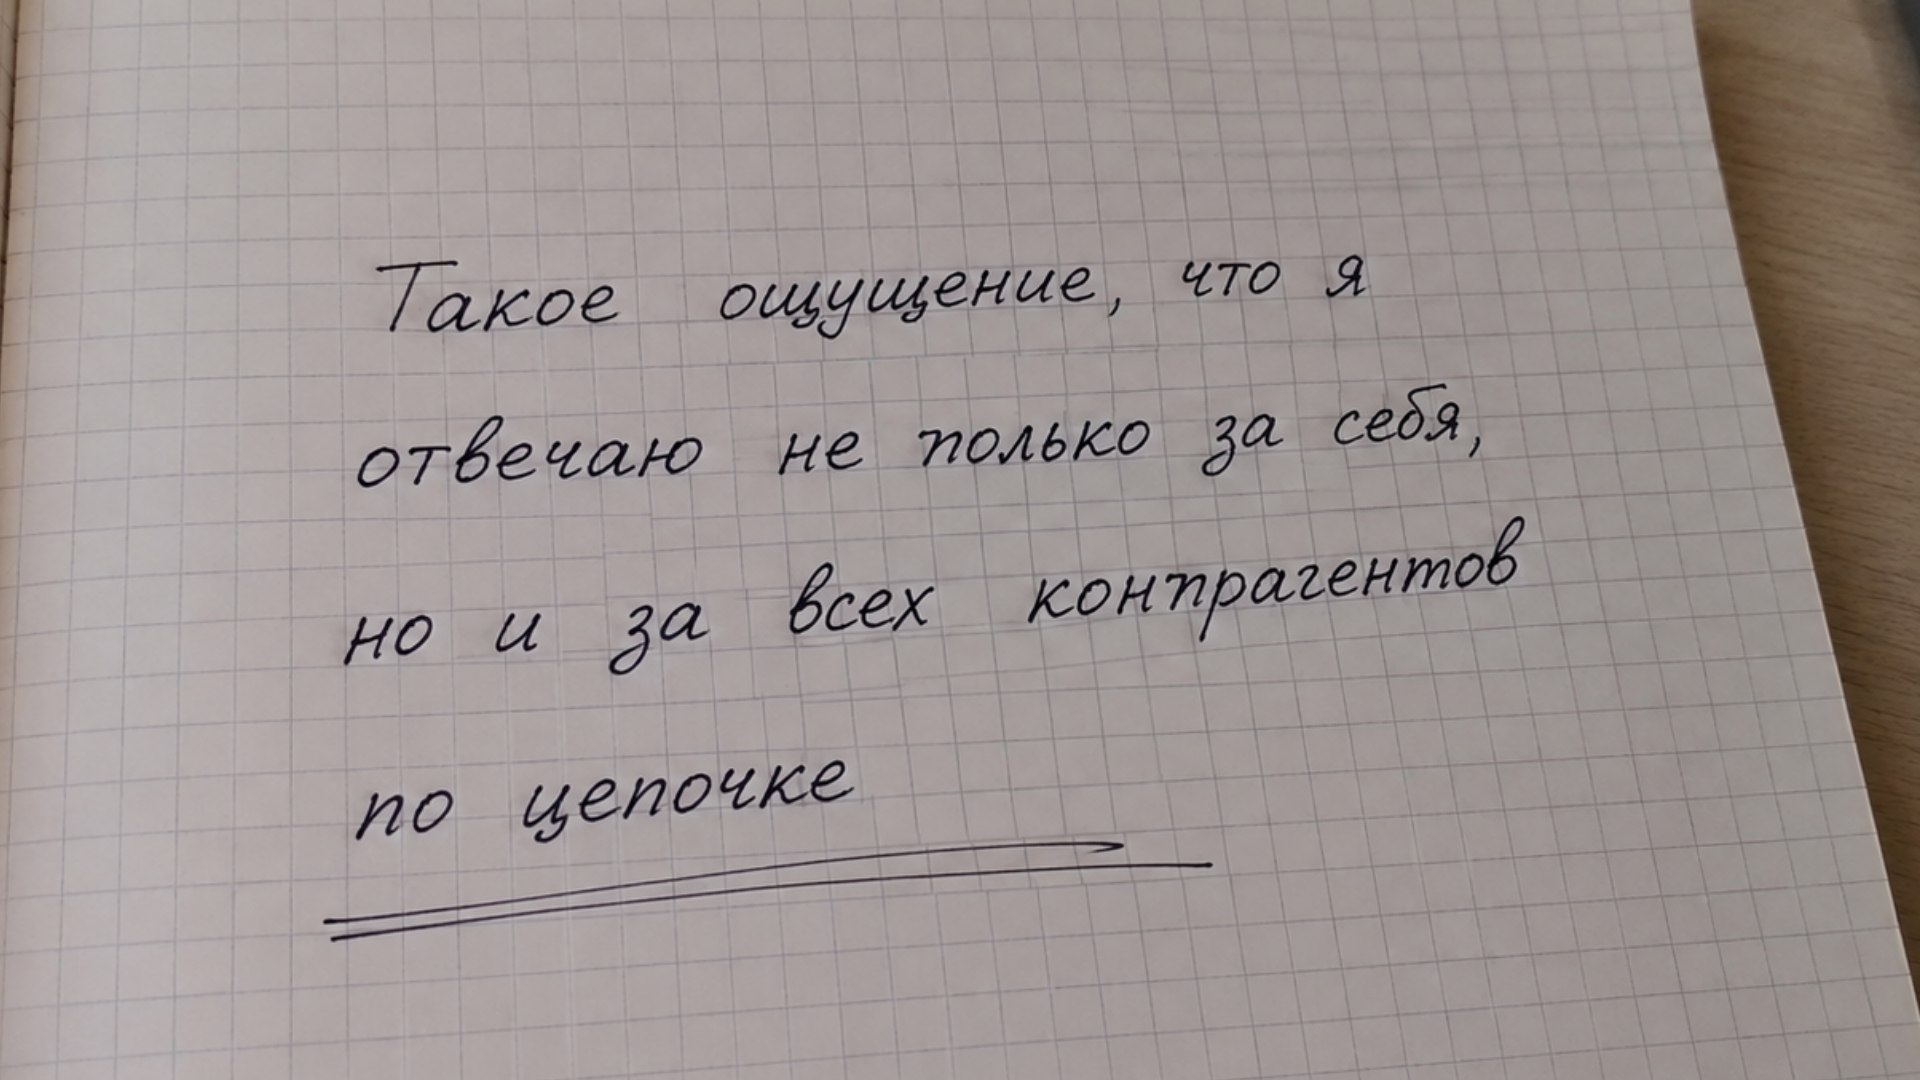 Такое ощущение, что я
отвечаю не только за себя,
но и за всех конпрагентов
по цепочке